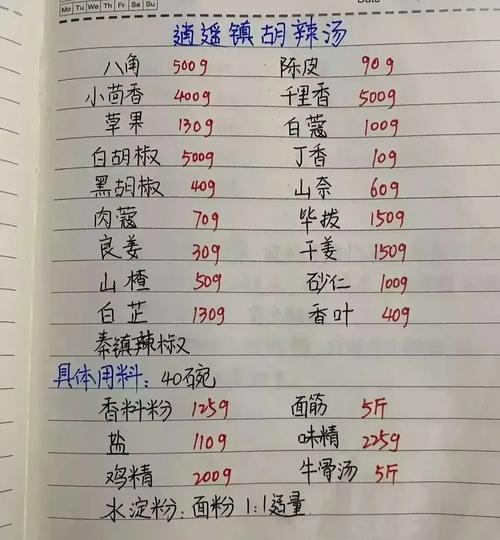 Mo Tu We Th Fr Sa Su
逍遥镇胡辣汤
八角 500g 陈皮 90g
小茴香 400g 千里香 500g
草果 130g 白蔻 100g
白胡椒 500g 丁香 10g
黑胡椒 40g 山奈 60g
肉蔻 70g 毕拔 150g
良姜 30g 干姜 150g
山楂 50g 砂仁 100g
白芷 130g 香叶 40g
秦镇辣椒
具体用料: 40碗
香料粉 125g 面筋 5斤
盐 110g 味精 225g
鸡精 200g 牛骨汤 5斤
水淀粉: 面粉 1:1适量